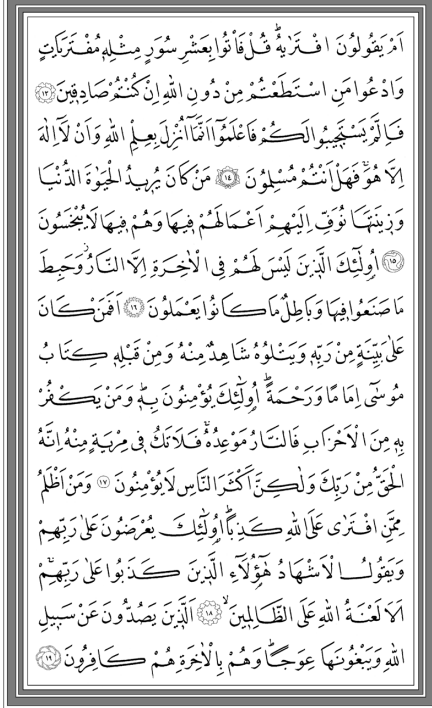 اَمْ يَقُولُونَ افْتَرٰيهُۜ قُلْ فَأْتُوا بِعَشْرِ سُوَرٍ مِثْلِه۪ مُفْتَرَيَاتٍ
وَادْعُوا مَنِ اسْتَطَعْتُمْ مِنْ دُونِ اللّٰهِ اِنْ كُنْتُمْ صَادِق۪ينَ ﴿١٣﴾
فَاِلَّمْ يَسْتَج۪يبُوا لَكُمْ فَاعْلَمُٓوا اَنَّمَٓا اُنْزِلَ بِعِلْمِ اللّٰهِ وَاَنْ لَٓا اِلٰهَ
اِلَّا هُوَۚ فَهَلْ اَنْتُمْ مُسْلِمُونَ ﴿١٤﴾ مَنْ كَانَ يُر۪يدُ الْحَيٰوةَ الدُّنْيَا
وَز۪ينَتَهَا نُوَفِّ اِلَيْهِمْ اَعْمَالَهُمْ ف۪يهَا وَهُمْ ف۪يهَا لَا يُبْخَسُونَ
﴿١٥﴾ اُو۬لٰٓئِكَ الَّذ۪ينَ لَيْسَ لَهُمْ فِي الْاٰخِرَةِ اِلَّا النَّارُۘ وَحَبِطَ
مَا صَنَعُوا ف۪يهَا وَبَاطِلٌ مَا كَانُوا يَعْمَلُونَ ﴿١٦﴾ اَفَمَنْ كَانَ
عَلٰى بَيِّنَةٍ مِنْ رَبِّه۪ وَيَتْلُوهُ شَاهِدٌ مِنْهُ وَمِنْ قَبْلِه۪ كِتَابُ
مُوسٰٓى اِمَامًا وَرَحْمَةًۜ اُو۬لٰٓئِكَ يُؤْمِنُونَ بِه۪ۜ وَمَنْ يَكْفُرْ
بِه۪ مِنَ الْاَحْزَابِ فَالنَّارُ مَوْعِدُهُۚ فَلَا تَكُ ف۪ي مِرْيَةٍ مِنْهُ اِنَّهُ
الْحَقُّ مِنْ رَبِّكَ وَلٰكِنَّ اَكْثَرَ النَّاسِ لَا يُؤْمِنُونَ ﴿١٧﴾ وَمَنْ اَظْلَمُ
مِمَّنِ افْتَرٰى عَلَى اللّٰهِ كَذِبًاۜ اُو۬لٰٓئِكَ يُعْرَضُونَ عَلٰى رَبِّهِمْ
وَيَقُولُ الْاَشْهَادُ هٰٓؤُ۬لَٓاءِ الَّذ۪ينَ كَذَبُوا عَلٰى رَبِّهِمْۚ
اَلَا لَعْنَةُ اللّٰهِ عَلَى الظَّالِم۪ينَۙ ﴿١٨﴾ اَلَّذ۪ينَ يَصُدُّونَ عَنْ سَب۪يلِ
اللّٰهِ وَيَبْغُونَهَا عِوَجًاۜ وَهُمْ بِالْاٰخِرَةِ هُمْ كَافِرُونَ ﴿١٩﴾